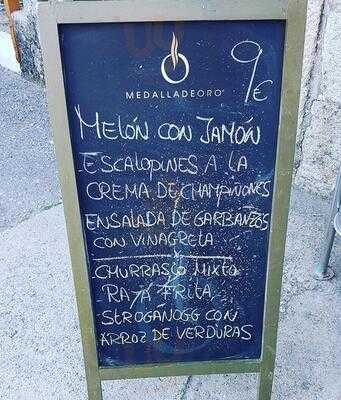 MEDALLADEORO
9€
MELÓN CON JAMÓN
ESCALOPINES A LA
CREMA DE CHAMPIÑONES
ENSALADA DE GARBANZOS
CON VINAGRETA
CHURRASCO MIXTO
RAYA FRITA
STROGANOGG CON
ARROZ DE VERDURAS